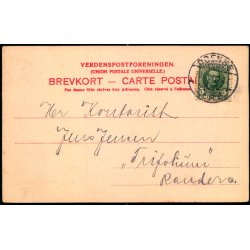 VERDENSPOSTFORENINGEN.
(UNION POSTALE UNIVERSELLE.)
BREVKORT — CARTE POSTALE
Paa denne Side skrives kun Adressen. Côté réservé à l'adresse.
Hr Kontorist
Jens Jensen
„Trifolium"
Randers